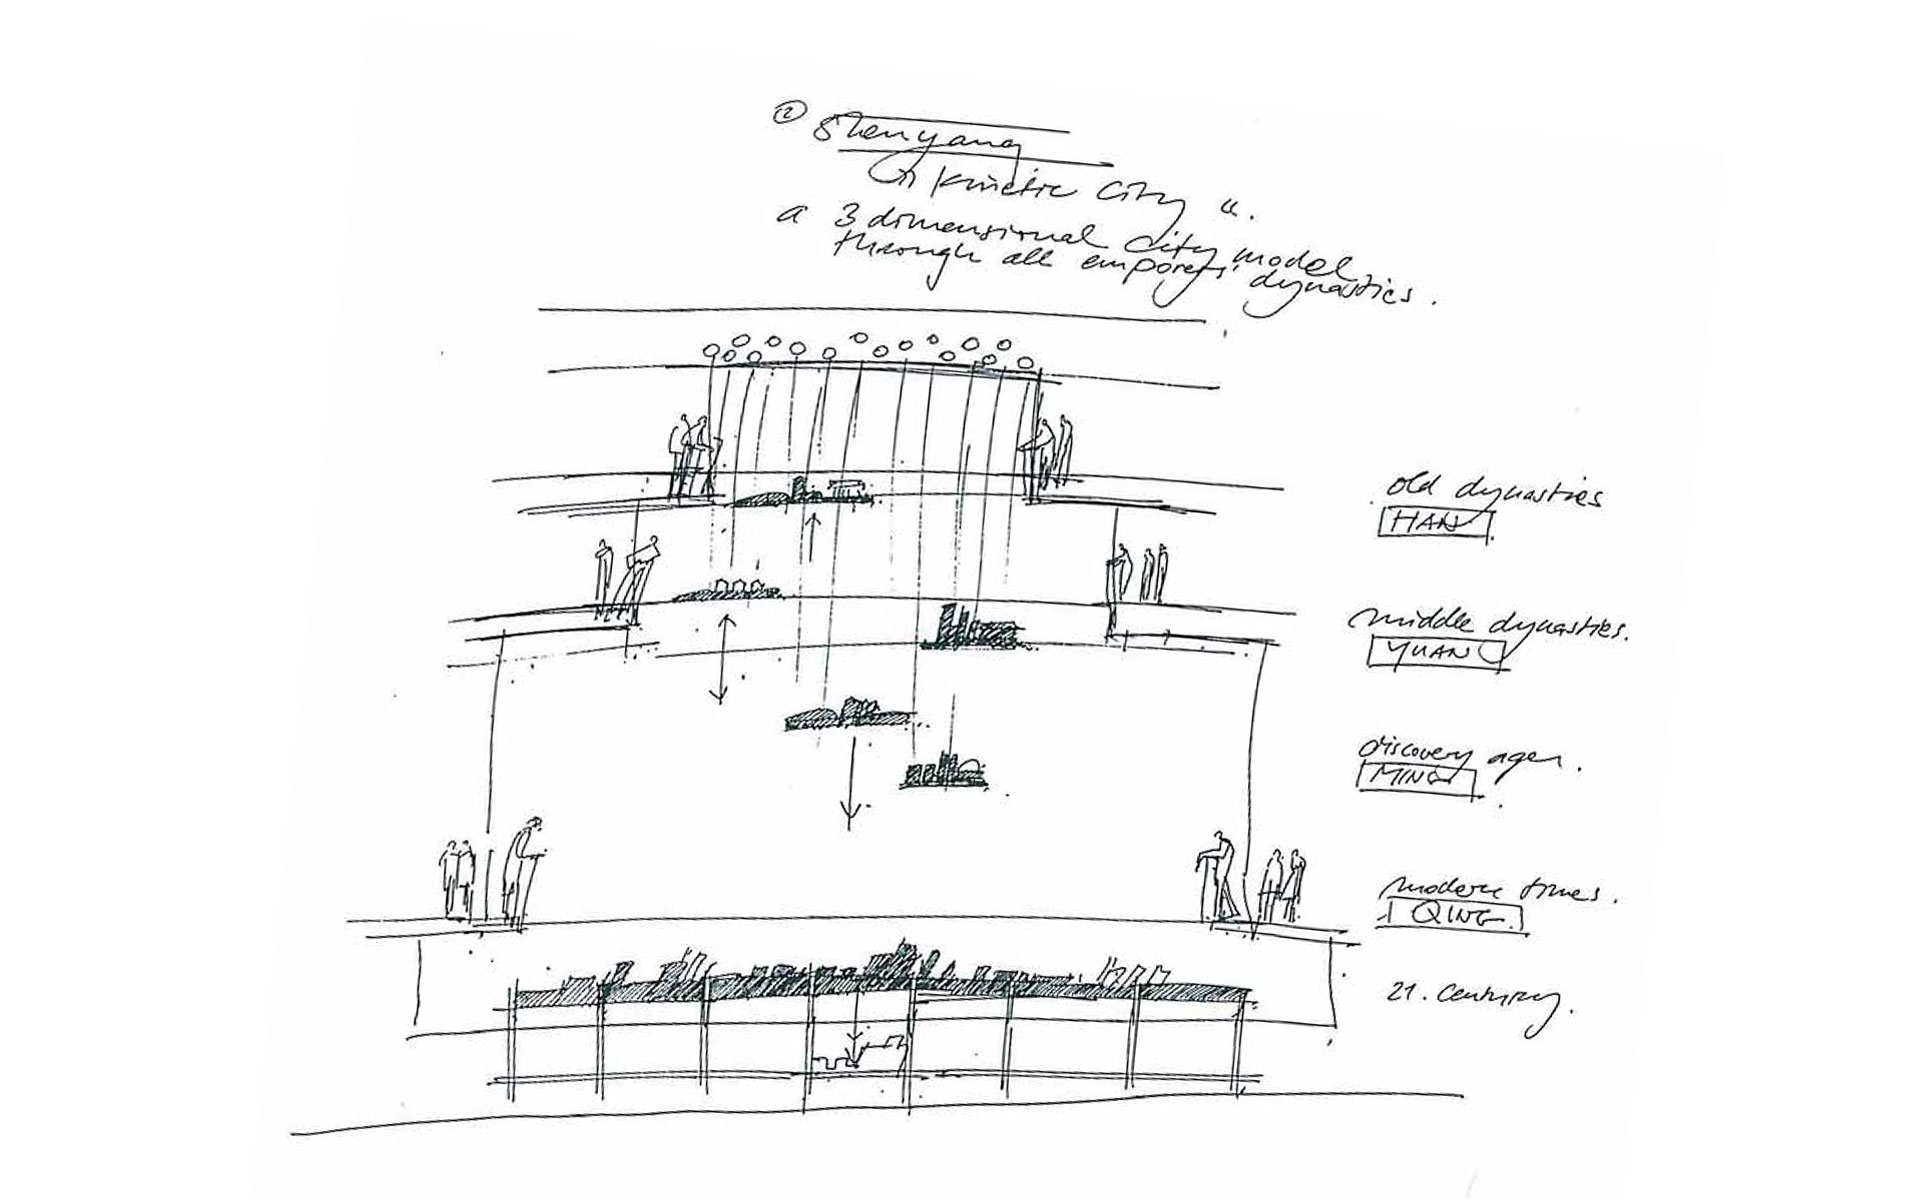 ② Shenyang
„ kinetic city “.
a 3 dimensional city model
through all emporers' dynastics.
old dynasties
HAN
middle dynasties.
YUAN
discovery ages.
MING
modern times.
QING
21. Century.